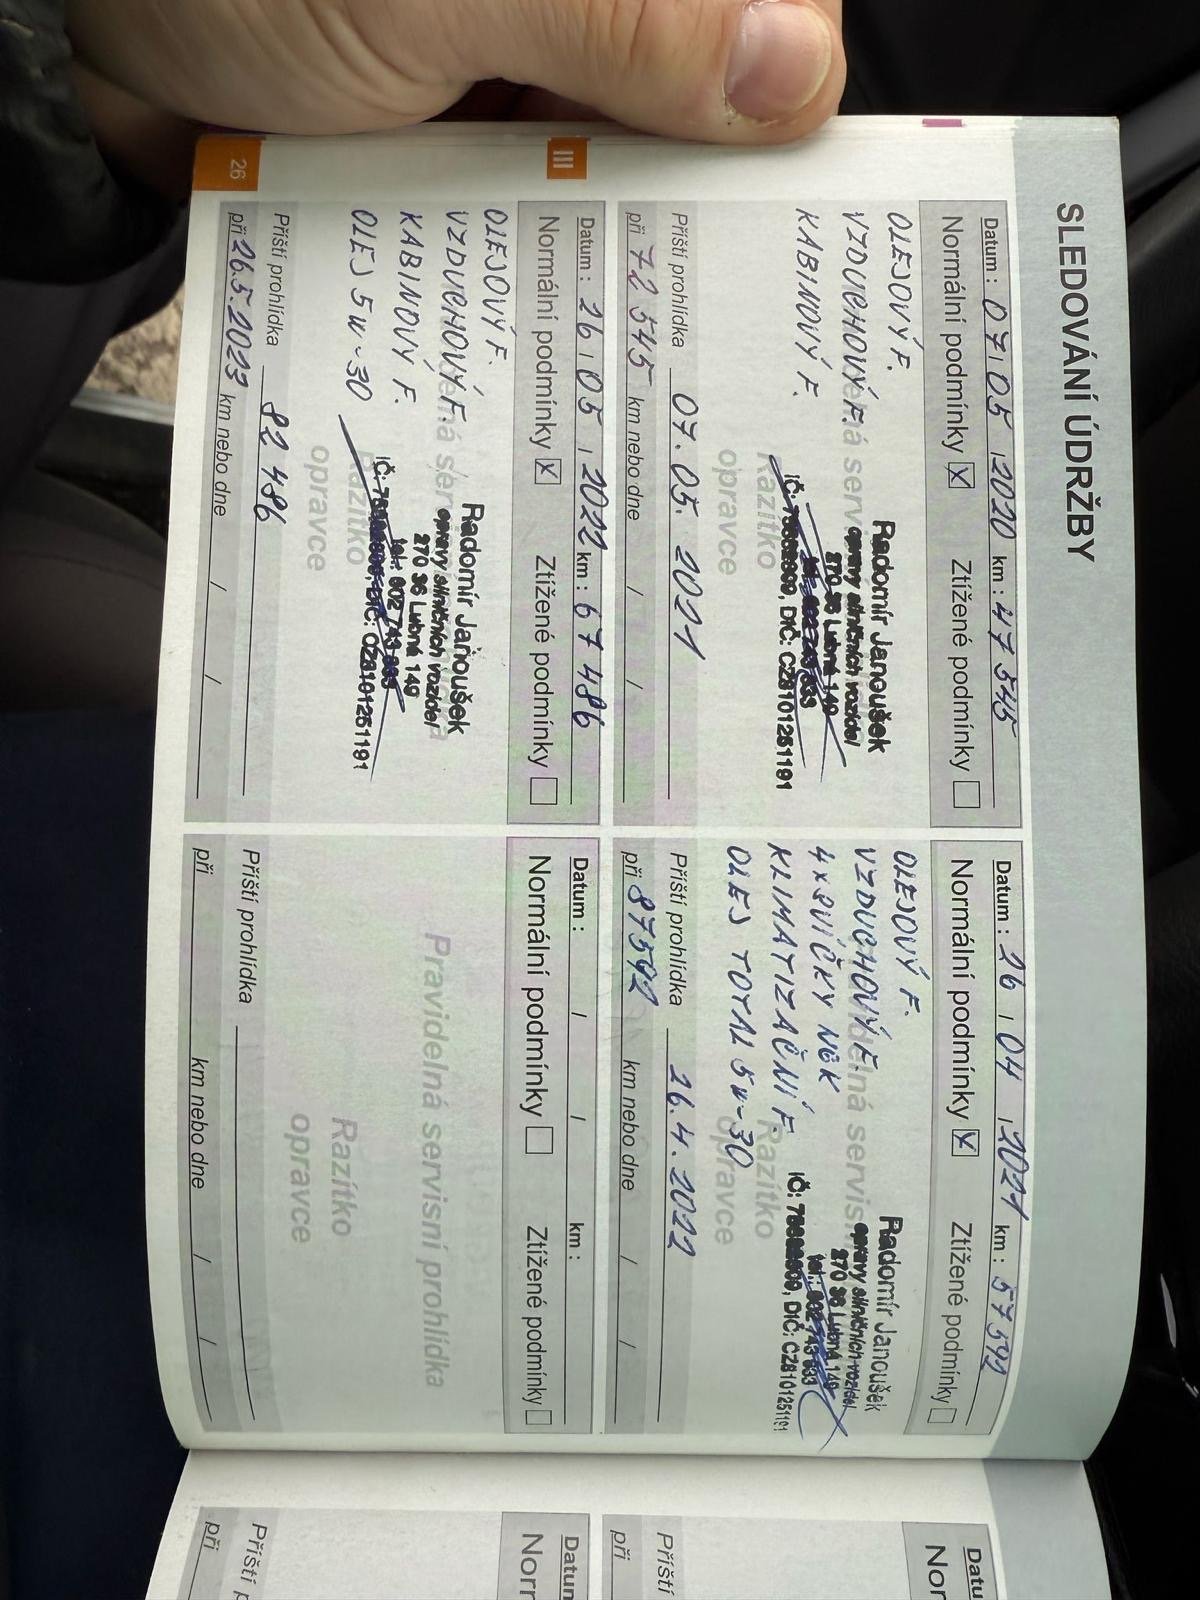 SLEDOVÁNÍ ÚDRŽBY
Datum : 07 / 05 / 2020 km : 47 545
Normální podmínky X Ztížené podmínky
OLEJOVÝ F.
VZDUCHOVÝ F.
KABINOVÝ F.
Radomír Janoušek
opravy silničních vozidel
270 36 Lubná 149
DIČ: CZ8101251191
Razítko
opravce
Příští prohlídka 07. 05. 2021
při 72 545 km nebo dne / /
Datum : 26 / 04 / 2021 km : 57592
Normální podmínky X Ztížené podmínky
OLEJOVÝ F.
VZDUCHOVÝ F.
4x SVÍČKY NGK
KLIMATIZAČNÍ F.
OLEJ TOTAL 5W-30
Radomír Janoušek
opravy silničních vozidel
270 36 Lubná 149
DIČ: CZ8101251191
Razítko
opravce
Příští prohlídka 26.4.2022
při 87592 km nebo dne / /
III
Datum : 26 / 05 / 2022 km : 67 486
Normální podmínky X Ztížené podmínky
OLEJOVÝ F.
VZDUCHOVÝ F.
KABINOVÝ F.
OLEJ 5W-30
Radomír Janoušek
opravy silničních vozidel
270 36 Lubná 149
DIČ: CZ8101251191
Razítko
opravce
Příští prohlídka 82 486
při 26.5.2023 km nebo dne / /
Datum : / / km :
Normální podmínky Ztížené podmínky
Pravidelná servisní prohlídka
Razítko
opravce
Příští prohlídka
při km nebo dne / /
26
Datu
Nor
Příští
při
Datun
Norr
Příští p
při